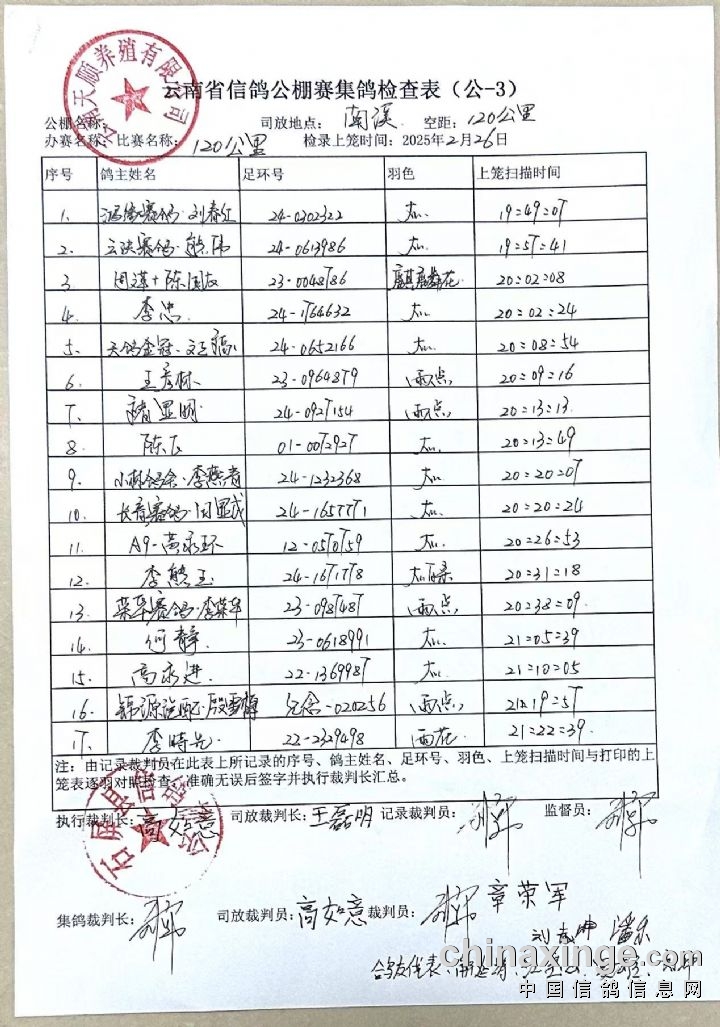 云南省信鸽公棚赛集鸽检查表（公-3）
公棚名称： 司放地点： 南溪 空距： 120公里
办赛名称： 比赛名称： 120公里 检录上笼时间： 2025年2月26日
序号 鸽主姓名 足环号 羽色 上笼扫描时间
1. 赛鸽·刘春红 24-0302322 灰 19:49:07
2. 赛鸽·熊伟 24-0613986 灰 19:57:41
3 周 + 陈国友 23-0048786 麒麟花 20:02:08
4. 李忠 24-1764632 灰 20:02:24
5. 天鸽金冠·文 24-0652166 灰 20:08:54
6. 王 林 23-0964879 雨点 20:09:16
7. 褚显明 24-0927154 雨点 20:13:13
8. 陈 01-0072927 灰 20:13:49
9. 小林鸽舍·李燕青 24-1232368 灰 20:20:07
10. 长青赛鸽·闫显成 24-1657771 灰 20:20:24
11. A9-高永环 12-0570759 灰 20:26:53
12. 李熊玉 24-1671778 20:31:18
13. 荣华赛鸽·李荣华 23-0987487 雨点 20:38:09
14. 何静 23-0618991 灰 21:05:39
15. 高永进 22-1369987 灰 21:10:05
16. 锦源汽配·殷雪梅 纪念-020256 雨点 21:19:57
17. 李時光 22-2329498 雨花 21:22:39
注：由记录裁判员在此表上所记录的序号、鸽主姓名、足环号、羽色、上笼扫描时间与打印的上
笼表逐羽对照检查，准确无误后签字并执行裁判长汇总。
执行裁判长： 高如意 司放裁判长： 王磊明 记录裁判员： 监督员：
集鸽裁判长： 司放裁判员： 高如意 裁判员： 章荣军
鸽友代表：
天顺养殖有限公司
chinaxinge.com
中国信鸽信息网